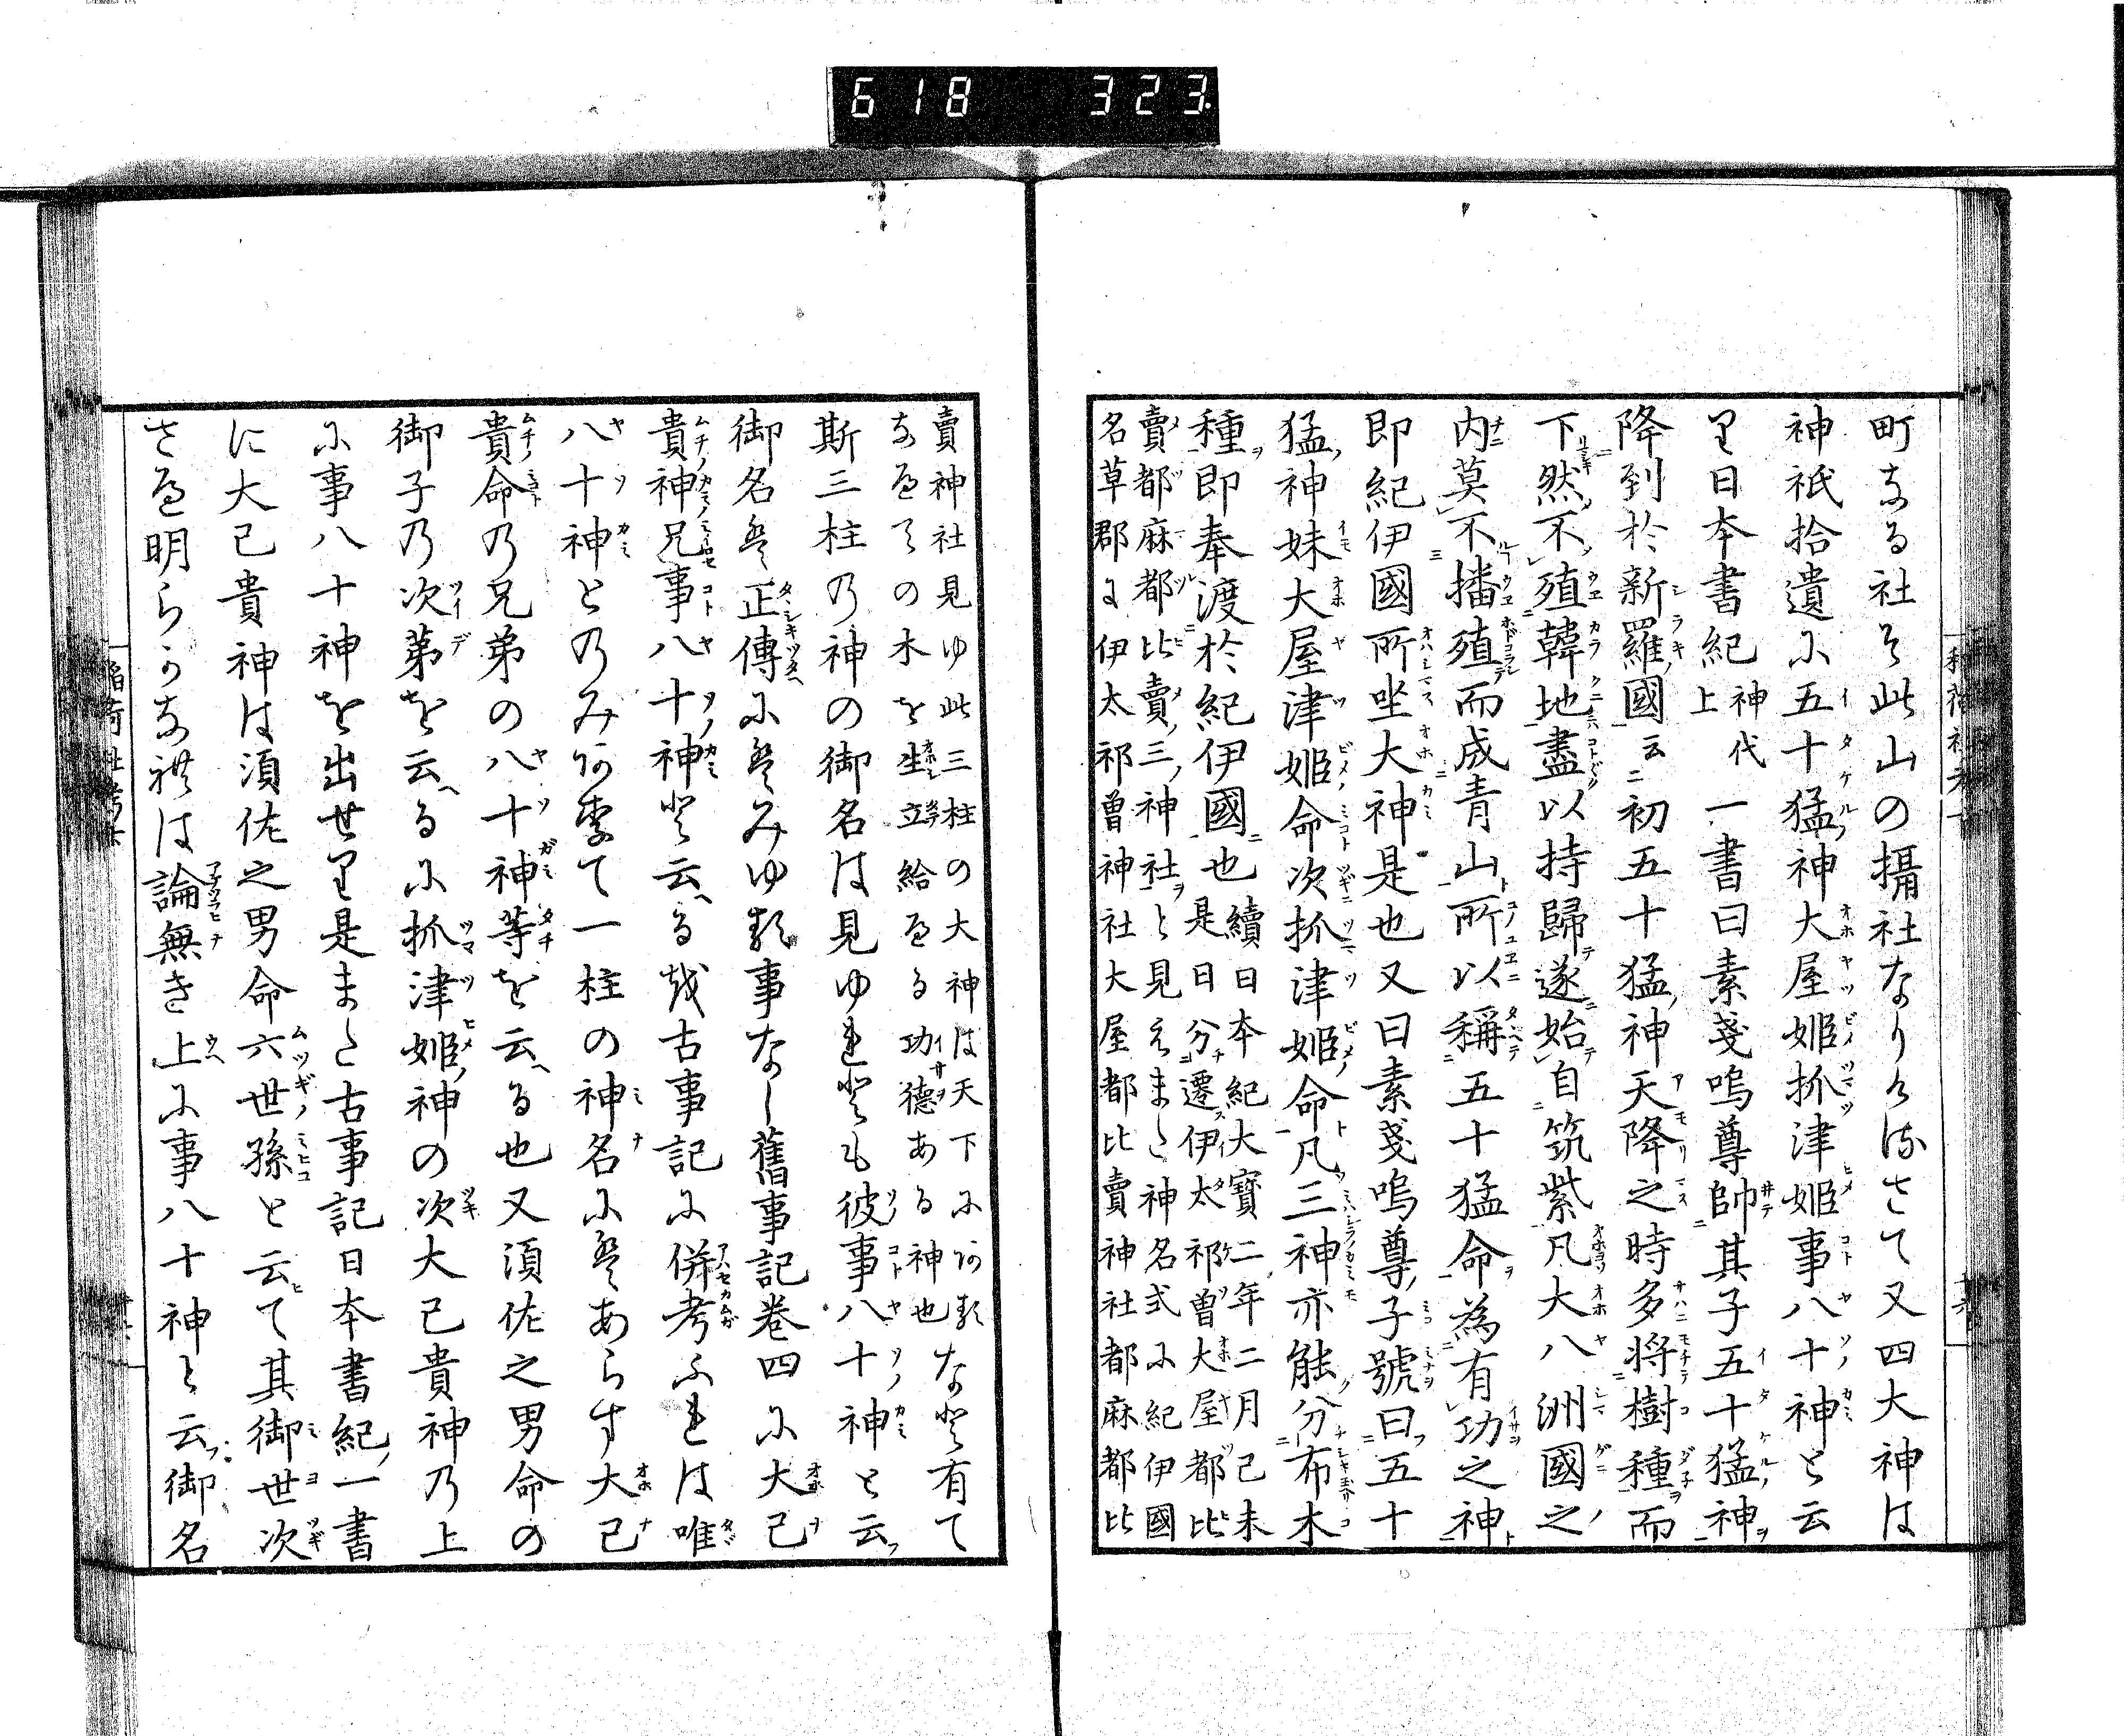 618 323
町なる社そ此山の攝社なりけるさて又四大神は
神祇拾遺に五十猛神大屋姫抓津姫事八十神と云
り日本書紀神代上一書曰素戔嗚尊帥其子五十猛神
降到於新羅國云〻初五十猛神天降之時多将樹種而
下然不殖韓地盡以持歸遂始自筑紫凡大八洲國之
内莫不播殖而成青山所以稱五十猛命為有功之神
即紀伊國所坐大神是也又曰素戔嗚尊子號曰五十
猛神妹大屋津姫命次抓津姫命凡三神亦能分布木
種即奉渡於紀伊國也續日本紀大寶二年二月己未
是日分遷伊太祁曽大屋都比
賣都麻都比賣三神社と見えまた神名式に紀伊國
名草郡に伊太祁曽神社大屋都比賣神社都麻都比
賣神社見ゆ此三柱の大神は天下に
なべての木を生立給へる功德ある神也
斯三柱の神の御名は見ゆれとも彼事八十神と云
御名は正傳にはみゆる事なし舊事記卷四に大己
貴神兄事八十神と云へるを古事記に併考ふれは唯
八十神とのみ有て一柱の神名にはあらす大己
貴命の兄弟の八十神等を云へる也又須佐之男命の
御子の次第を云へるに抓津姫神の次大己貴神の上
に事八十神を出せり是また古事記日本書紀一書
に大己貴神は須佐之男命六世孫と云て其御世次
さへ明らかなれは論無き上に事八十神と云御名